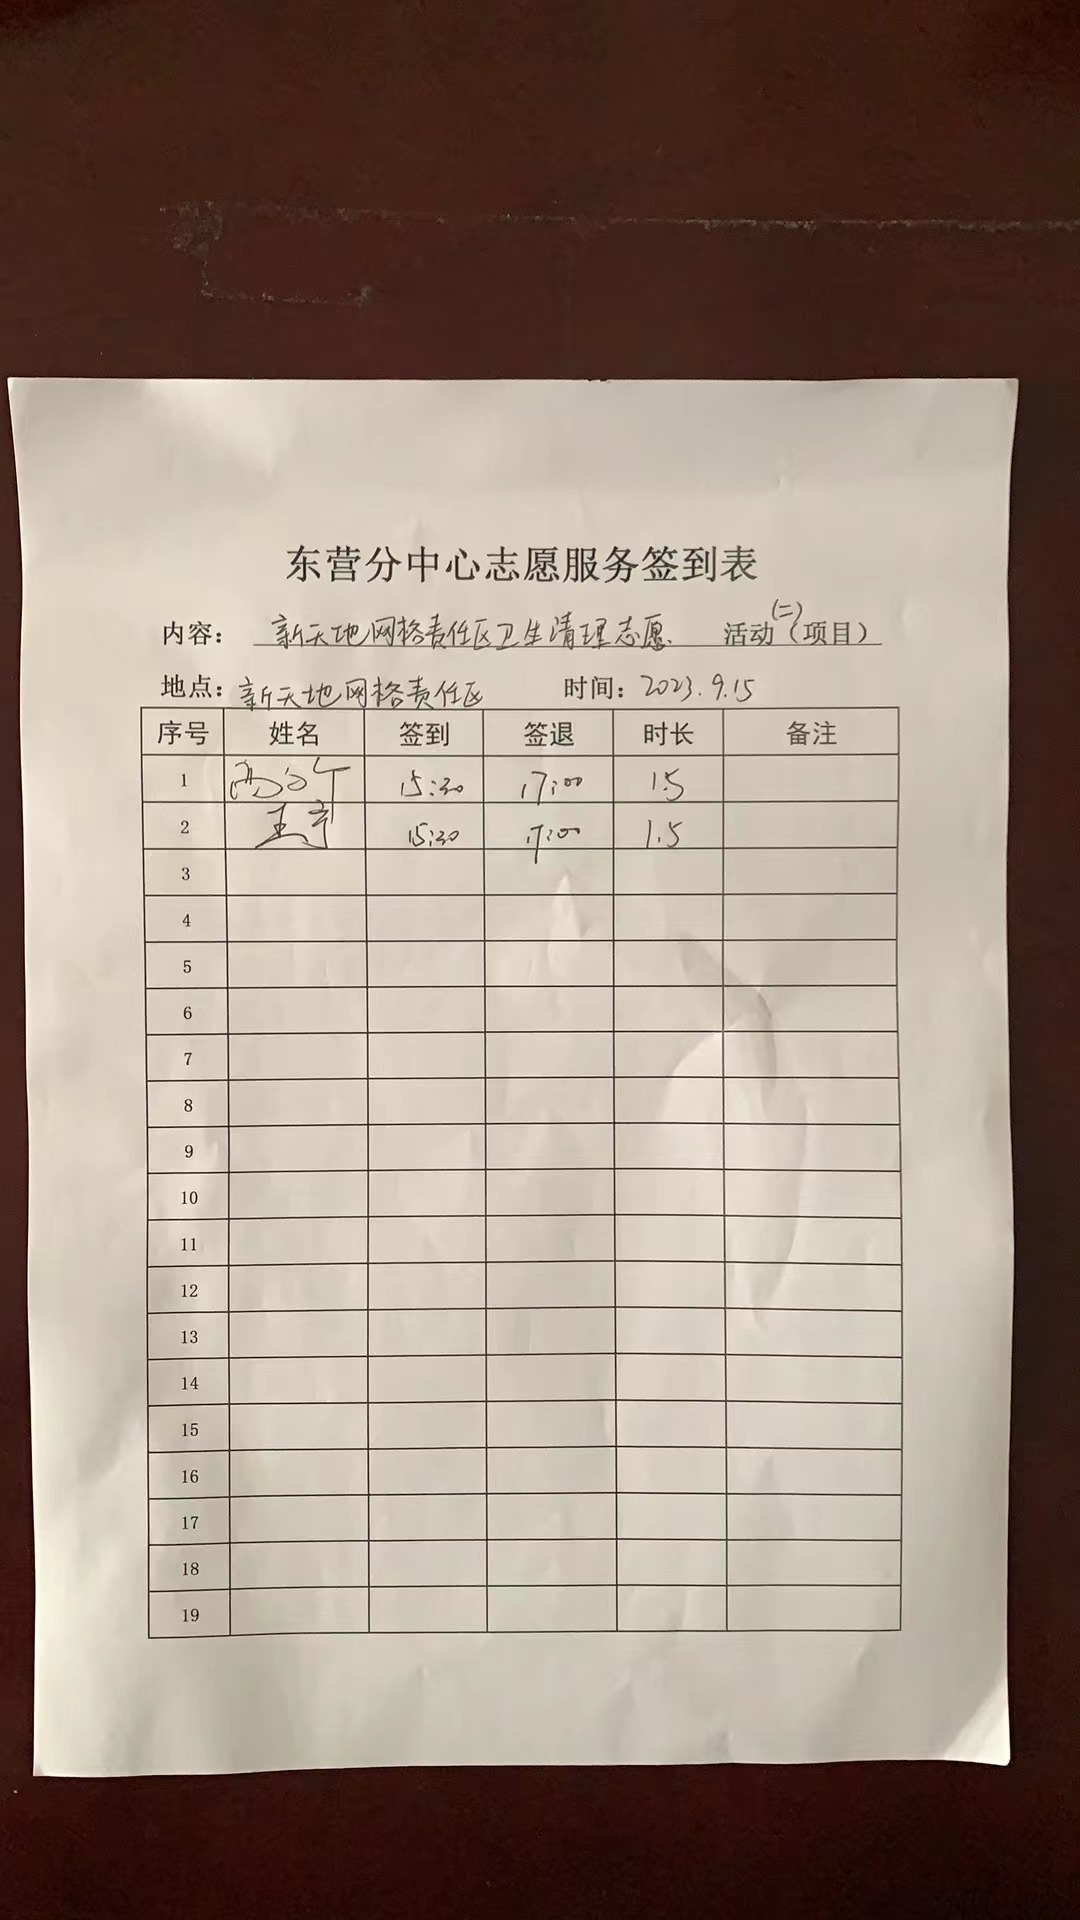 东营分中心志愿服务签到表
内容： 新天地网格责任区卫生清理志愿 活动(二)（项目）
地点：新天地网格责任区 时间：2023.9.15
序号 姓名 签到 签退 时长 备注
1 15:30 17:00 1.5
2 15:30 17:00 1.5
3
4
5
6
7
8
9
10
11
12
13
14
15
16
17
18
19